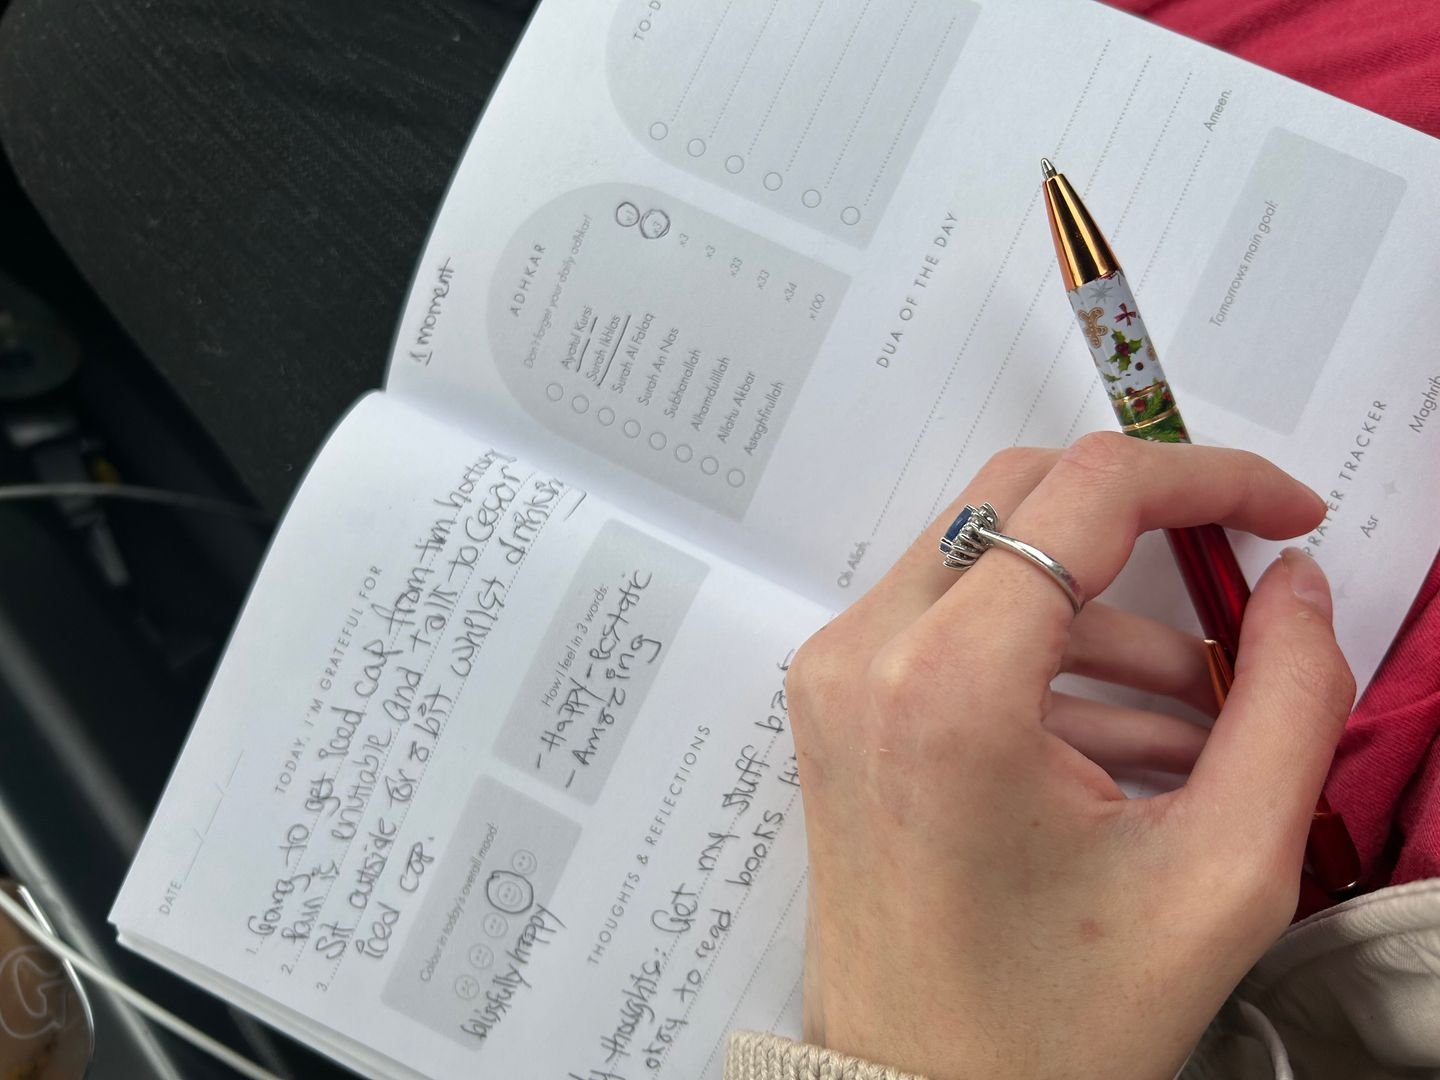 DATE
TODAY, I'M GRATEFUL FOR
1. Going to get iced cap from tim hortons
2. Pain is enuitable And talk to Cesar
3. Sit outside for a bit whilst drinking
iced cap.
Colour in today's overall mood:
blissfully happy
How I feel in 3 words:
- Happy - Ecstatic
- Amazing
THOUGHTS & REFLECTIONS
thoughts: Get my stuff back
okay to read books
1 moment
ADHKAR
Don't forget your daily adhkar!
Ayatul Kursi x1
Surah Ikhlas x3
Surah Al Falaq x3
Surah An Nas x3
Subhanallah x33
Alhamdulillah x33
Allahu Akbar x34
Astaghfirullah x100
TO-D
DUA OF THE DAY
Oh Allah,
Ameen.
Tomorrows main goal:
PRAYER TRACKER
Asr
Maghrib